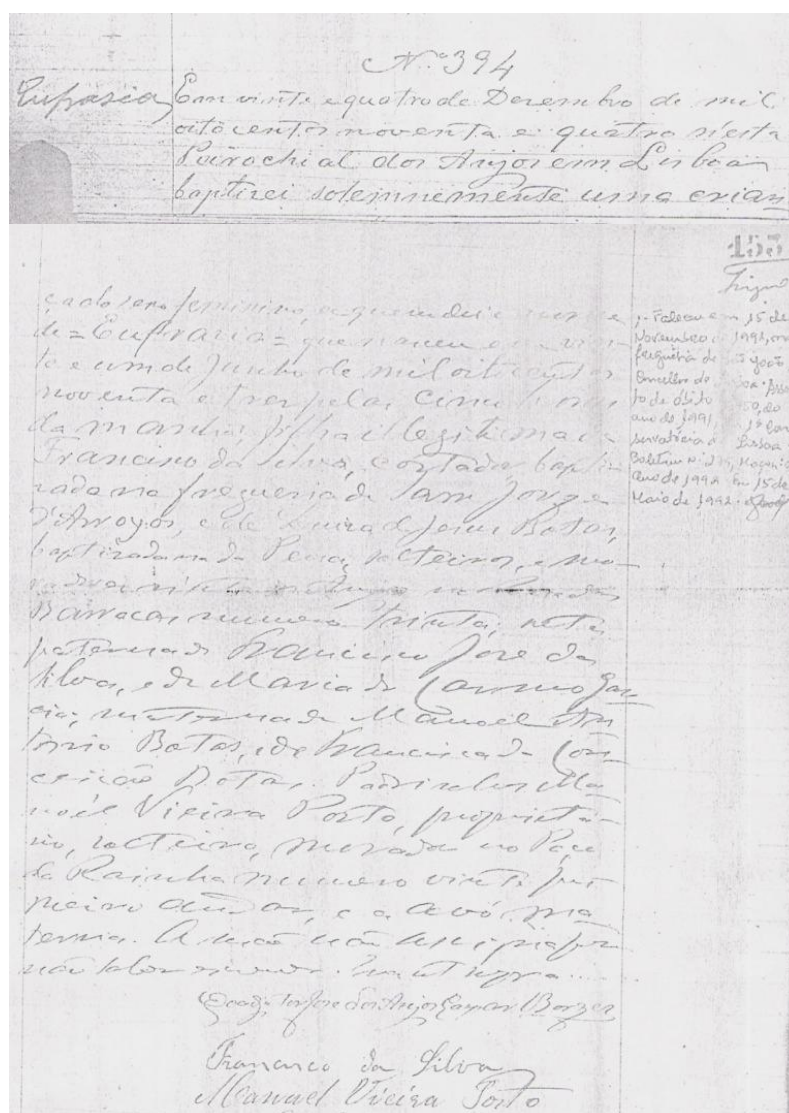 N.º 394
Eufrasia
Em vinte e quatro de Dezembro de mil
oitocentos noventa e quatro n'esta
Parochial dos Anjos em Lisboa
baptizei solemnemente uma crian
153
ça do sexo feminino, a quem dei o nome
de = Eufrazia = que nasceu em vin
te e um de Junho de mil oitocentos
noventa e tres pelas cinco horas
da manhã, filha illegitima de
Francisco da Silva, cortador, bapti
zado na freguezia de Sam Jorge
d'Arroyos, e de Luiza de Jesus Botas,
baptizada na da Pena, solteiros, e mo-
Barracas numero trinta, neta
paterna de Francisco José da
Silva, e de Maria do Carmo Gar
cia; materna de Manoel An
tonio Botas, e de Francisca da Con
ceição Botas. Padrinhos Ma
noel Vieira Porto, proprieta-
rio, solteiro, morador no Paço
da Rainha numero vinte pri
meiro andar, e a avó ma
terna. A mãe não assigna por
não saber escrever. Era ut supra.
José dos Anjos Gaspar Borges
Francisco da Silva
Manuel Vieira Porto
Faleceu em 15 de
Novembro de 1991, na
freguesia de São João
Concelho de Lisboa. Assen
to de óbito 50, do
ano de 1991, 1ª Con
servatória de Lisboa
Boletim nº Maço nº
Ano de 1992. Em 15 de
Maio de 1992.